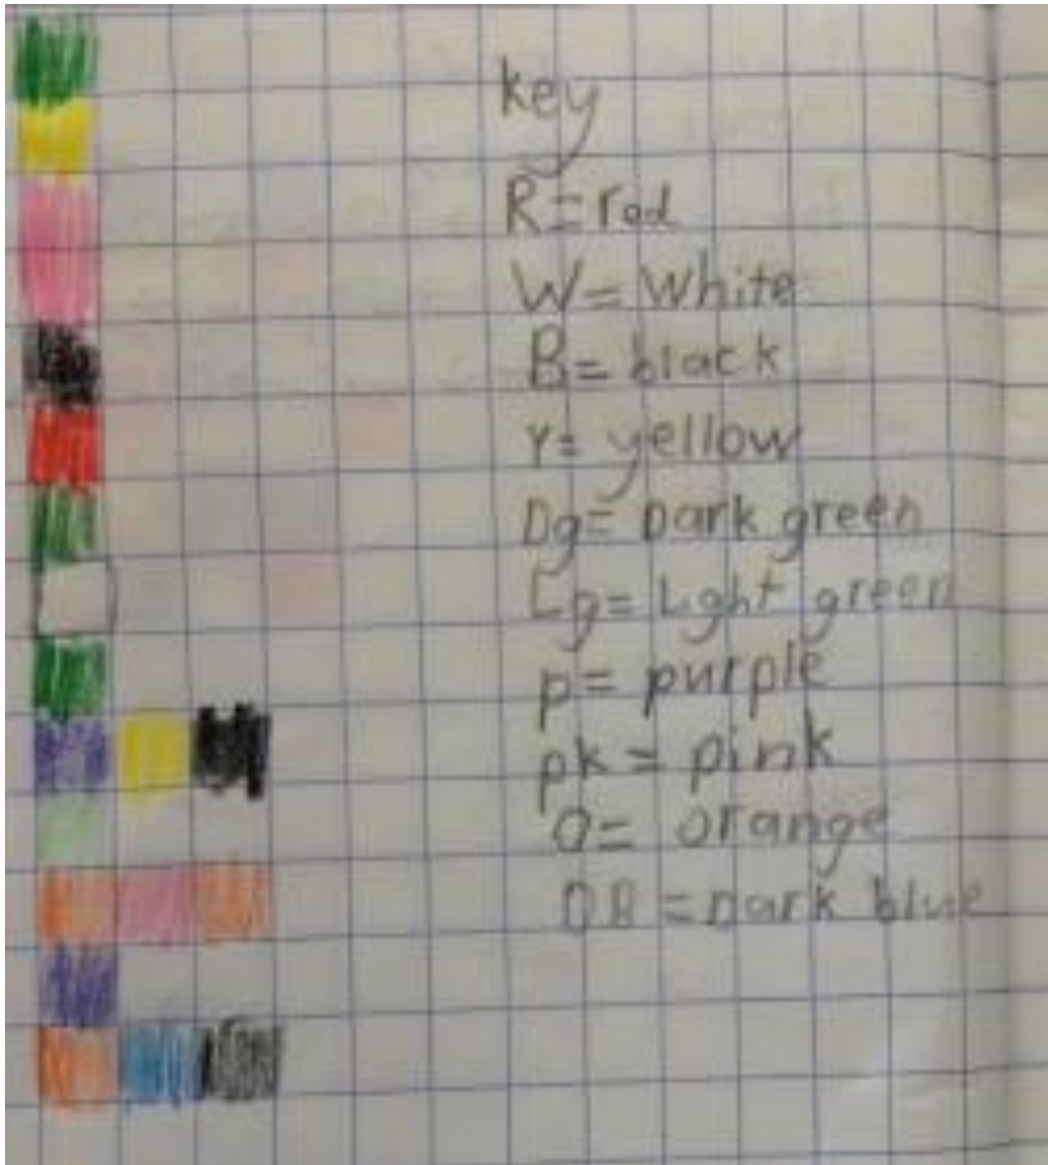 key
R = red
W = White
B = black
Y = yellow
Dg = Dark green
Lg = Light green
p = purple
pk = pink
O = orange
DB = Dark blue